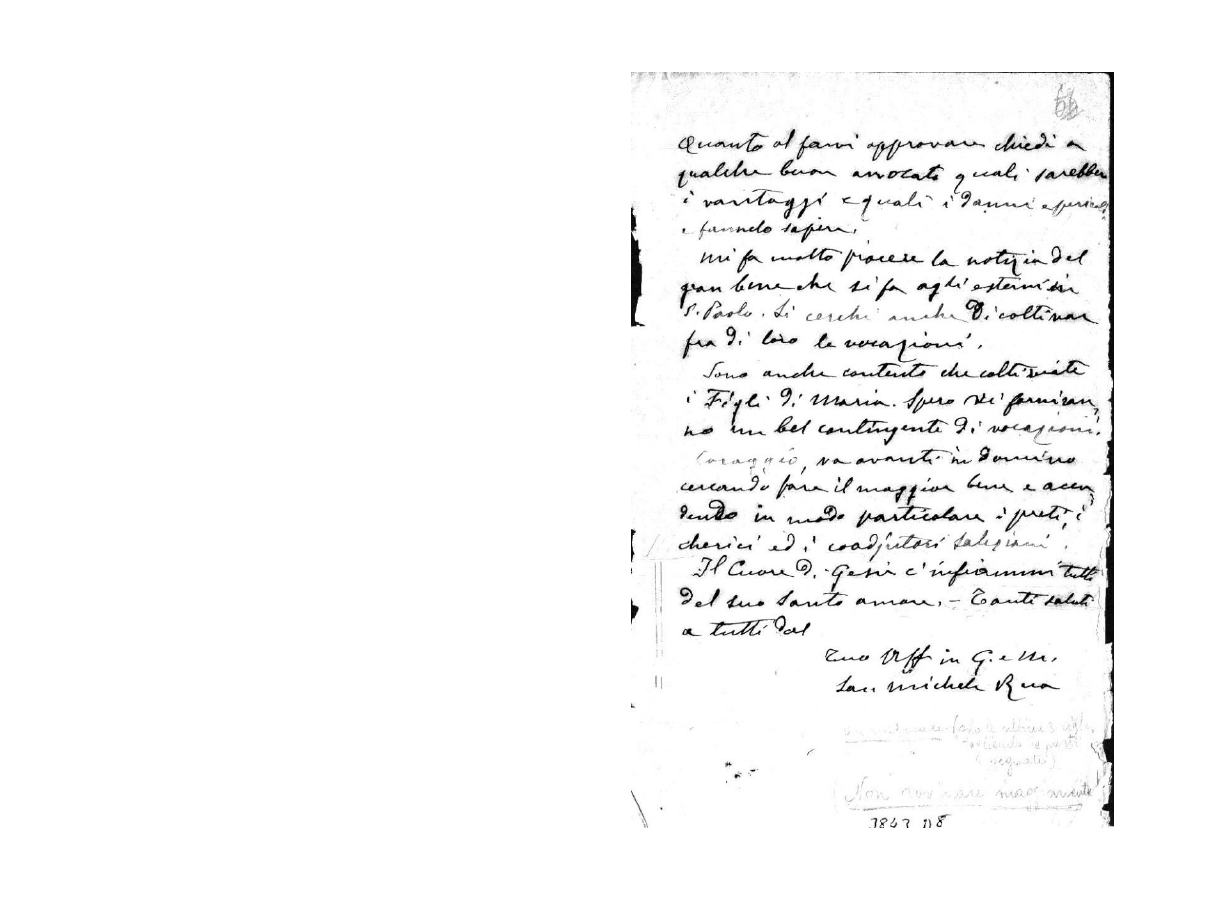 64
Quanto al farvi approvare chiedi a
qualche buon avvocato quali sarebbero
i vantaggi e quali i danni e pericoli
e fammelo sapere.
Mi fa molto piacere la notizia del
gran bene che si fa agli esterni in
S. Paolo. Si cerchi anche di coltivar
fra di loro le vocazioni.
Sono anche contento che coltiviate
i Figli di Maria. Spero vi forniran
no un bel contingente di vocazioni.
Coraggio, va avanti in Domino
cercando fare il maggior bene e accu
dendo in modo particolare i preti, i
cherici ed i coadjutori salesiani.
Il Cuore di Gesù c'infiammi tutti
del suo santo amore. – Tanti saluti
a tutti dal
Tuo aff in G. e M.
Sac Michele Rua
(segnate)
Non
3843 D8